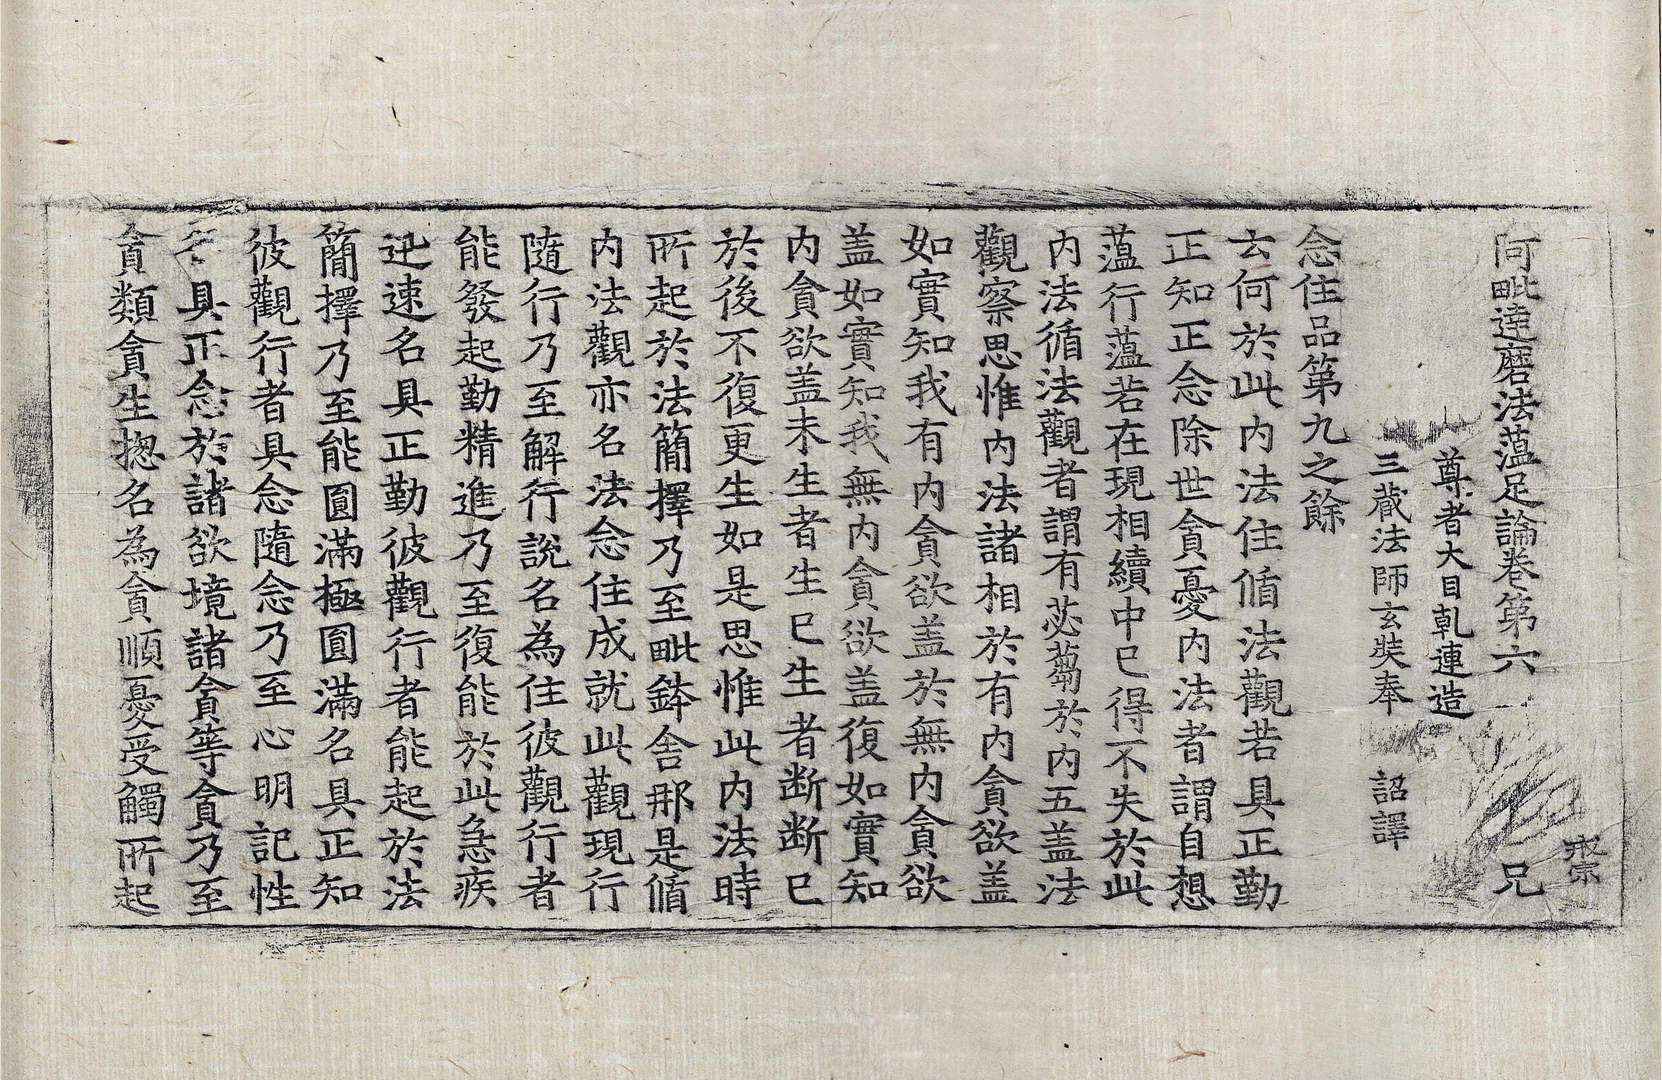 阿毗達磨法蘊足論卷第六 兄
尊者大目乹連造
三藏法師玄奘奉 詔譯
念住品第九之餘
云何於此內法住循法觀若具正勤
正知正念除世貪憂內法者謂自想
蘊行蘊若在現相續中已得不失於此
內法循法觀者謂有苾蒭於內五盖法
觀察思惟內法諸相於有內貪欲盖
如實知我有內貪欲盖於無內貪欲
盖如實知我無內貪欲盖復如實知
內貪欲盖未生者生已生者断断已
於後不復更生如是思惟此內法時
所起於法簡擇乃至毗鉢舍那是循
內法觀亦名法念住成就此觀現行
隨行乃至解行說名為住彼觀行者
能發起勤精進乃至復能於此急疾
迅速名具正勤彼觀行者能起於法
簡擇乃至能圓滿極圓滿名具正知
彼觀行者具念隨念乃至心明記性
名具正念於諸欲境諸貪等貪乃至
貪類貪生揔名為貪順憂受觸所起